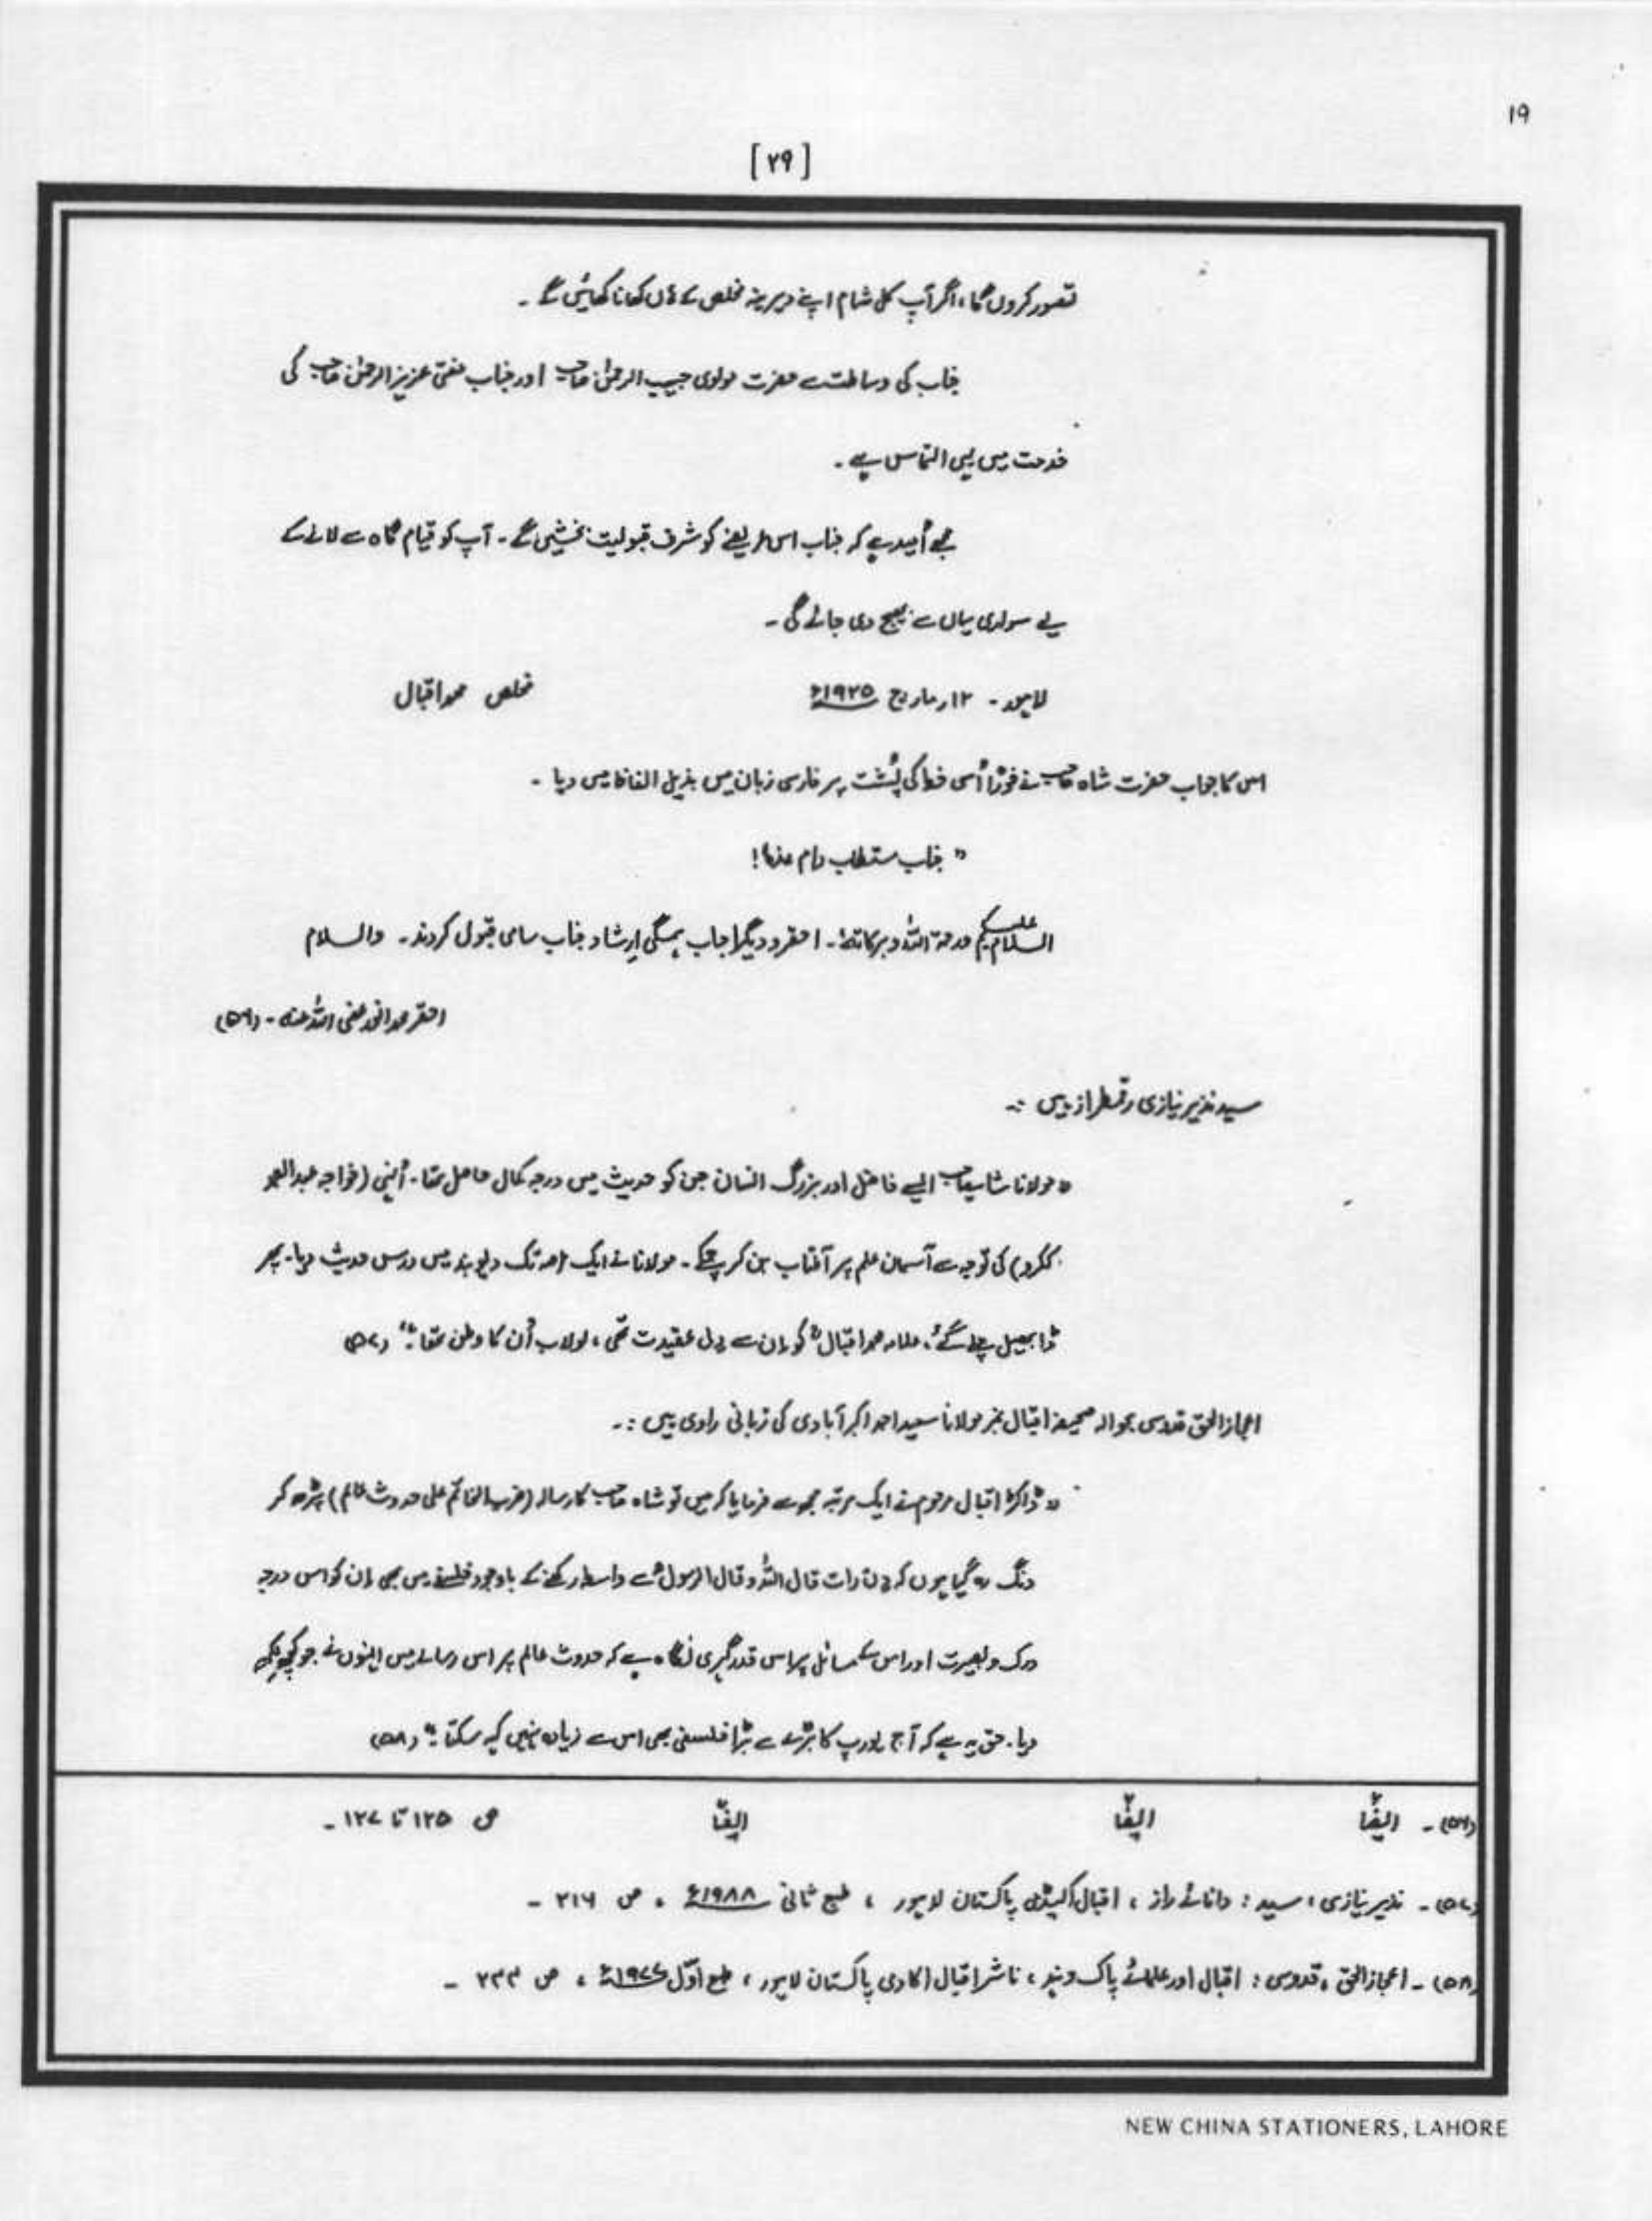 ۱۹
[ ۲۹ ]
تصور کروں گا، اگر آپ کل شام اپنے دیرینہ مخلص کے ہاں کھانا کھائیں گے ۔
جناب کی وساطت سے حضرت مولوی حبیب الرحمٰن صاحب اور جناب مفتی عزیز الرحمٰن صاحب کی
خدمت میں یہی التماس ہے ۔
مجھے اُمید ہے کہ جناب اس عریضے کو شرف قبولیت بخشیں گے ۔ آپ کو قیام گاہ سے لانے کے
لیے سواری یہاں سے بھیج دی جائے گی ۔
لاہور ۔ ۱۲ ر مارچ ۱۹۲۵ء مخلص محمد اقبال
اس کا جواب حضرت شاہ صاحب نے فوراً اُسی خط کی پُشت پر فارسی زبان میں بذیل الفاظ میں دیا ۔
" جناب مستطاب دام عزہ !
السلام علیکم ورحمۃ اللہ وبرکاتہٗ ۔ احقر و دیگر احباب ہمگی اِرشاد جناب سامی قبول کردند ۔ والسلام
احقر محمد انور عفی اللہ عنہ ۔ (۵۶)
سید نذیر نیازی رقمطراز ہیں :۔
" مولانا شاہ صاحب ایسے فاضل اور بزرگ انسان جن کو حدیث میں درجہ کمال حاصل تھا ۔ اُنہی (خواجہ عبدالصمد
ککرو) کی توجہ سے آسمان علم پر آفتاب بن کر چمکے ۔ مولانا نے ایک عرصہ تک دیوبند میں درس حدیث دیا ۔ پھر
ڈابھیل چلے گئے، علامہ محمد اقبالؒ کو اِن سے دِلی عقیدت تھی، لولاب اُن کا وطن تھا ۔" (۵۷)
اعجاز الحق قدوسی بحوالہ صحیفہ اقبال نمبر مولانا سعید احمد اکبر آبادی کی زبانی راوی ہیں :۔
" ڈاکٹر اقبال مرحوم نے ایک مرتبہ مجھ سے فرمایا کہ میں تو شاہ صاحب کا رسالہ (ضرب الخاتم علی حدوث عالم) پڑھ کر
دنگ رہ گیا ہوں کہ دن رات قال اللہ و قال الرسولؐ سے واسطہ رکھنے کے باوجود فلسفے میں بھی اِن کو اس درجہ
درک و بصیرت اور اس کے مسائل پر اس قدر گہری نگاہ ہے کہ حدوث عالم پر اس رسالے میں اُنہوں نے جو کچھ لکھ
دیا ۔ حق یہ ہے کہ آج یورپ کا بڑے سے بڑا فلسفی بھی اس سے زیادہ نہیں کہہ سکتا ۔" (۵۸)
(۵۶) ۔ ایضاً ایضاً ایضاً ص ۱۲۵ تا ۱۲۷ ۔
(۵۷) ۔ نذیر نیازی، سید : دانائے راز ، اقبال اکیڈمی پاکستان لاہور ، طبع ثانی ۱۹۸۸ء ، ص ۳۱۶ ۔
(۵۸) ۔ اعجاز الحق ، قدوسی : اقبال اور علمائے پاک و ہند ، ناشر اقبال اکادمی پاکستان لاہور ، طبع اوّل ۱۹۷۷ء ، ص ۲۳۳ ۔
NEW CHINA STATIONERS, LAHORE